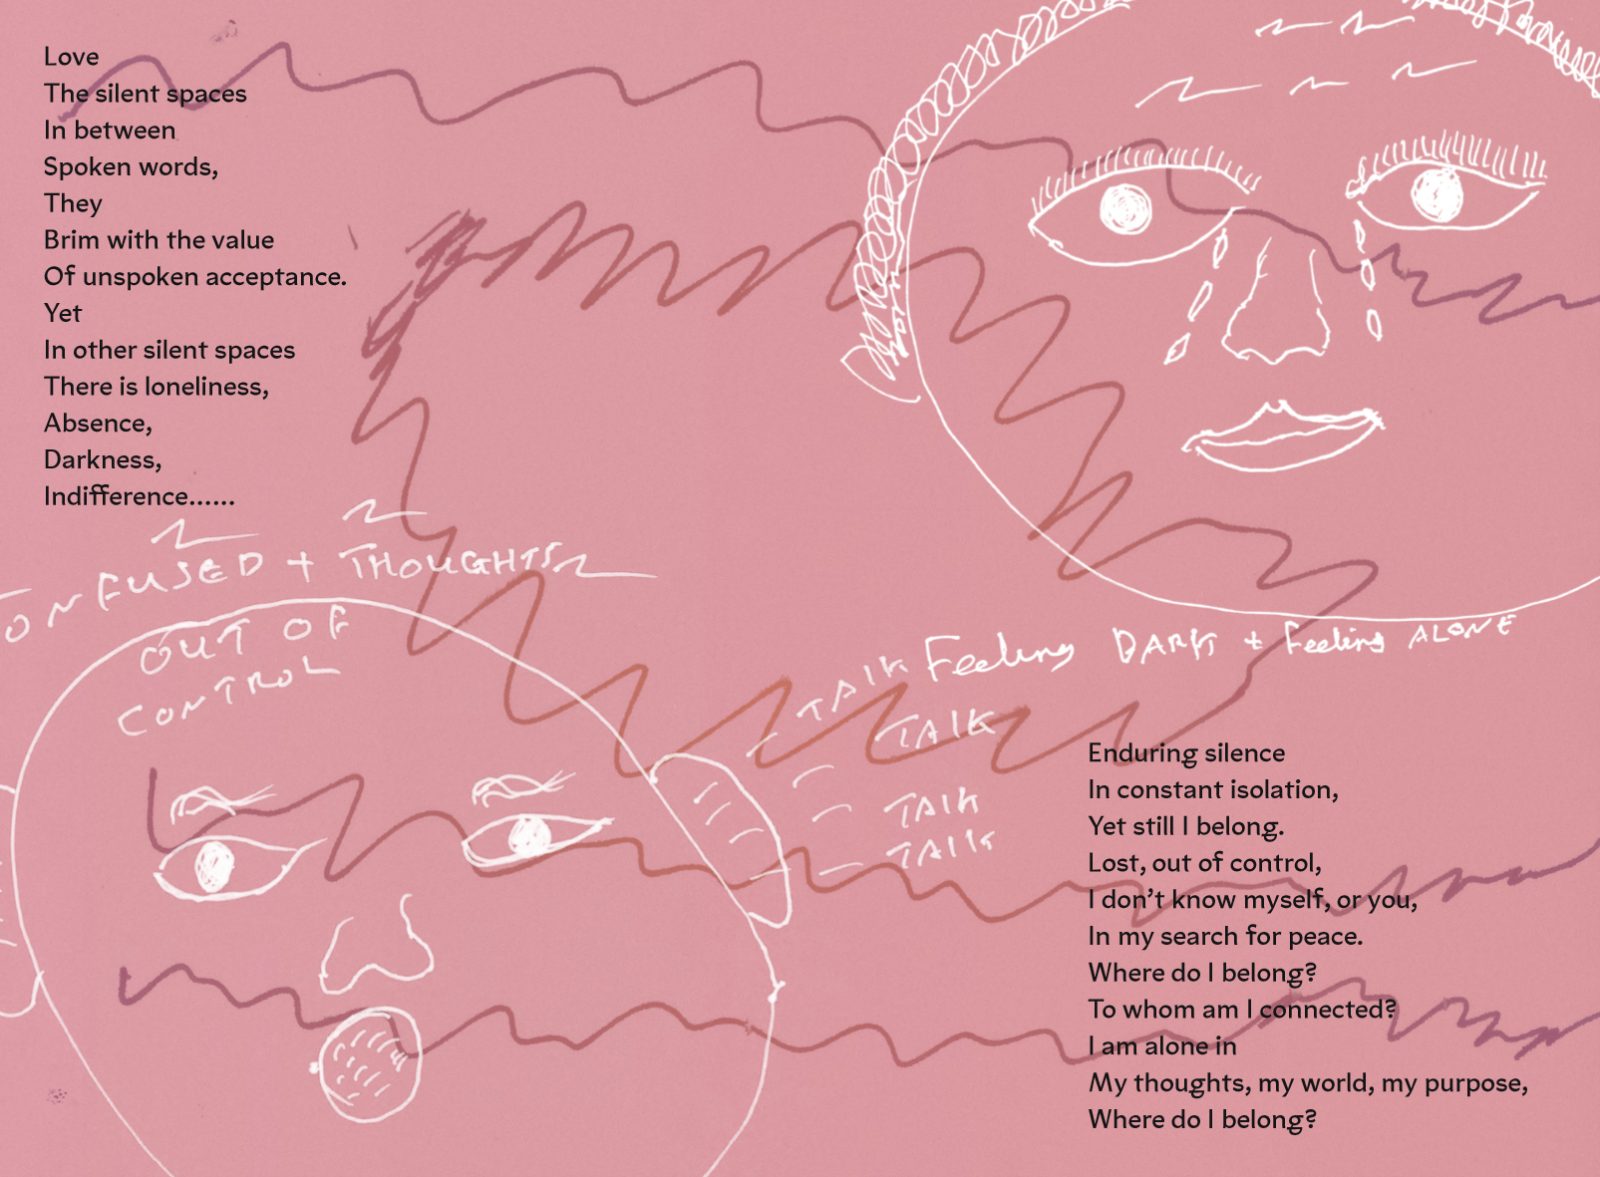 Love
The silent spaces
In between
Spoken words,
They
Brim with the value
Of unspoken acceptance.
Yet
In other silent spaces
There is loneliness,
Absence,
Darkness,
Indifference......
ONFUSED + THOUGHTS
OUT OF
CONTROL
Feeling DARK + Feeling ALONE
TALK
TALK
TALK
TALK
Enduring silence
In constant isolation,
Yet still I belong.
Lost, out of control,
I don’t know myself, or you,
In my search for peace.
Where do I belong?
To whom am I connected?
I am alone in
My thoughts, my world, my purpose,
Where do I belong?